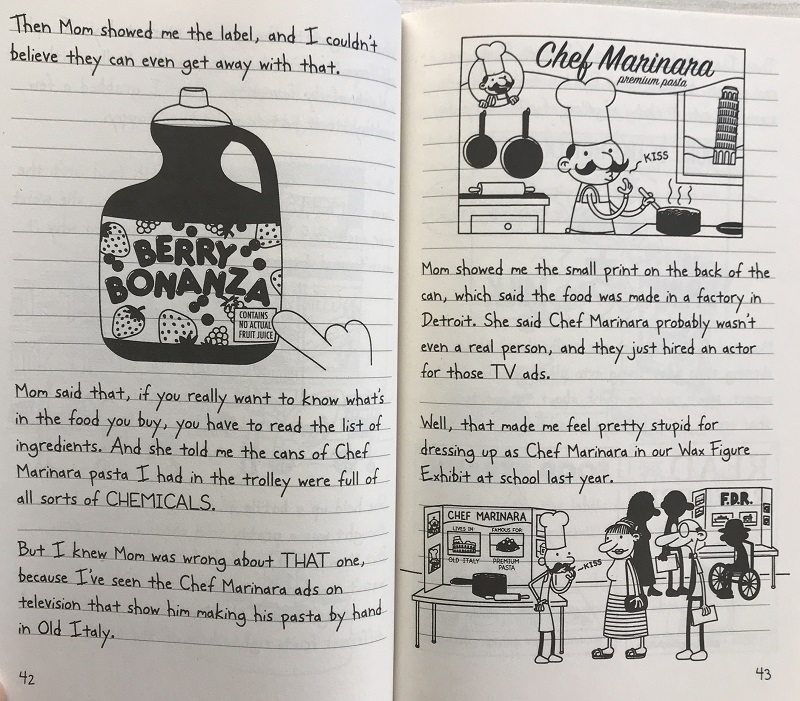 Then Mom showed me the label, and I couldn't
believe they can even get away with that.
BERRY
BONANZA
CONTAINS
NO ACTUAL
FRUIT JUICE
Mom said that, if you really want to know what's
in the food you buy, you have to read the list of
ingredients. And she told me the cans of Chef
Marinara pasta I had in the trolley were full of
all sorts of CHEMICALS.
But I knew Mom was wrong about THAT one,
because I've seen the Chef Marinara ads on
television that show him making his pasta by hand
in Old Italy.
42
Chef Marinara
premium pasta
KISS
Mom showed me the small print on the back of the
can, which said the food was made in a factory in
Detroit. She said Chef Marinara probably wasn't
even a real person, and they just hired an actor
for those TV ads.
Well, that made me feel pretty stupid for
dressing up as Chef Marinara in our Wax Figure
Exhibit at school last year.
CHEF MARINARA
LIVES IN
OLD ITALY
FAMOUS FOR
PREMIUM
PASTA
KISS
F.D.R.
43